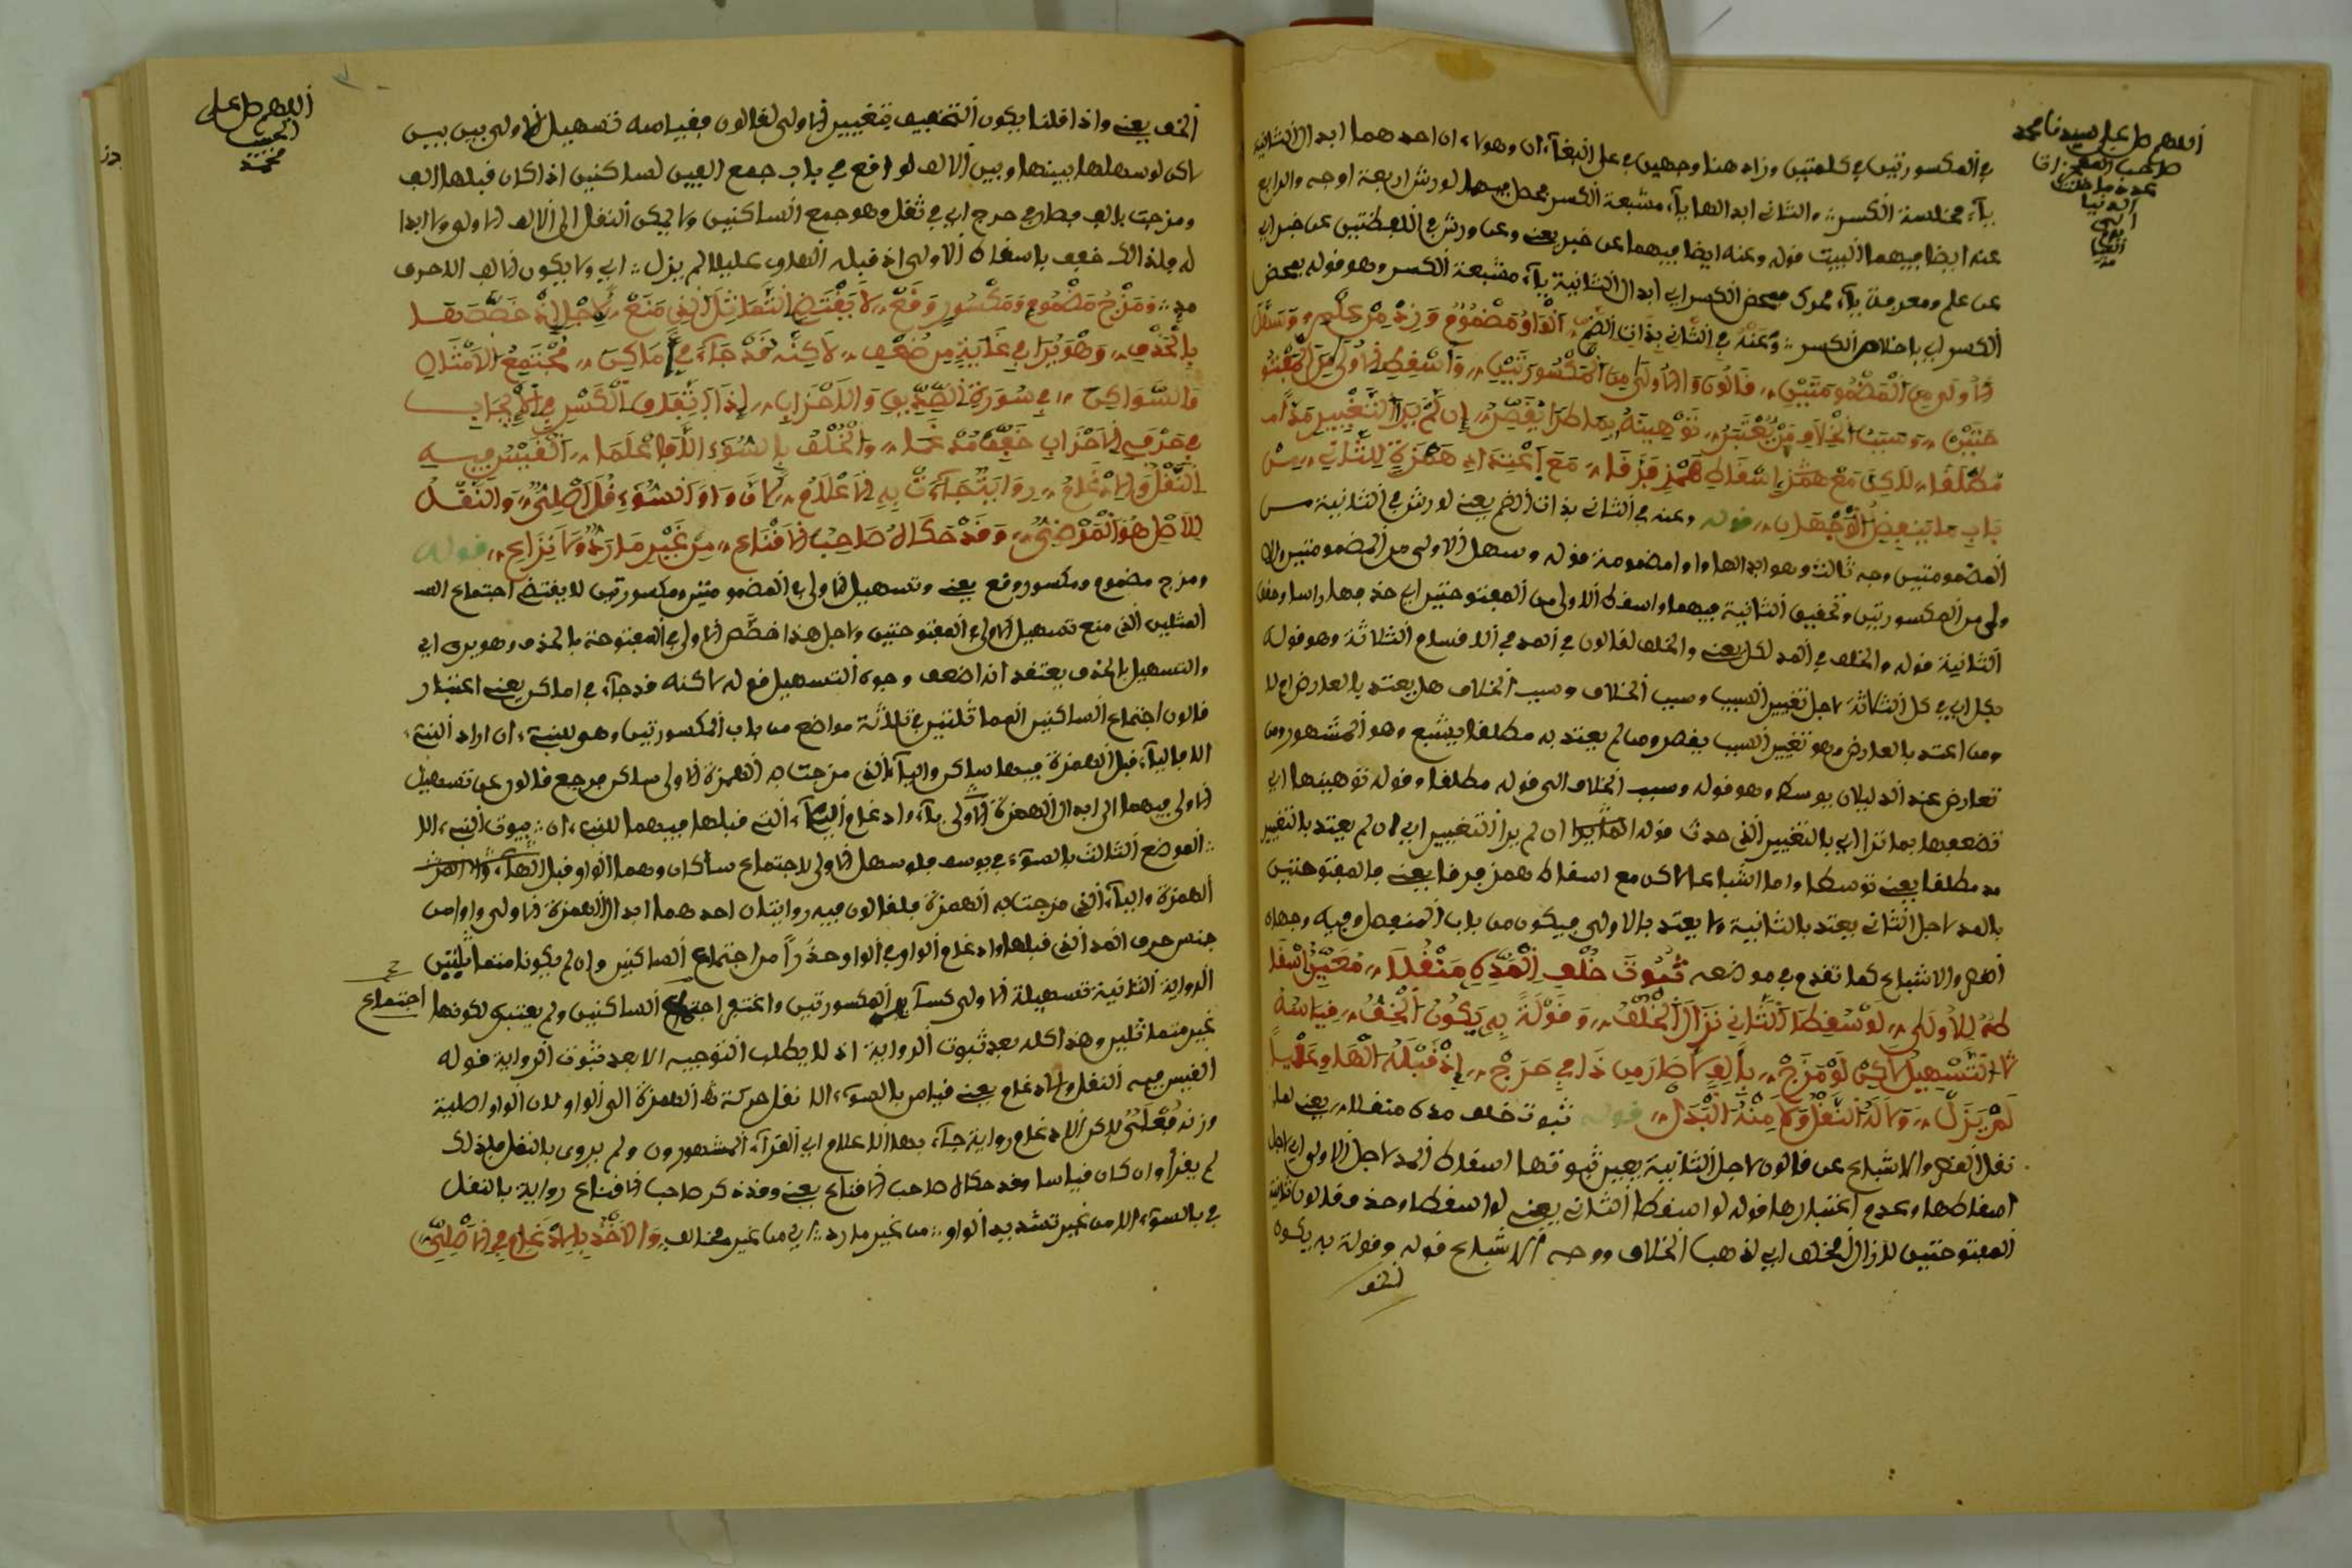 اللهم صل على سيدنا محمد
صاحب المعجزات
عدد ما خلقت
في المكسورتين في كلمتين وزاد هنا وجهين في على البغاء ان وهؤلاء ان احدهما ابدال الثانية
ياء مختلسة الكسر والثاني ابدالها ياء مشبعة الكسر فحصل فيهما لورش اربعة اوجه والرابع
عنه ايضا فيهما البيت قوله وعنه ايضا فيهما عن خبر يعني وعن ورش في اللفظتين عن خبر اي
عن علم ومعرفة ياء محرك ببعض الكسر اي ابدال الثانية ياء مشبعة الكسر وهو قوله بمحض
الكسر اي باخلاص الكسر وعنه في الثاني بذات الضم الواو مضموم وزد من علم وسهل
الاولى من المضمومتين قالون والاولى من المكسورتين واسقط الاولى من المفتو
حتين وسبب الخلاف من يعتبر توهينه بما طرا يقصر ان لم ير التغيير مد
مطلقا لكن مع همز اسقاط همز فرقا مع اعتداد همزة للثاني من
باب ما ينفصل الوجهان قوله وعنه في الثاني بذات الضم يعني لورش في الثانية من
المضمومتين وجه ثالث وهو ابدالها واوا مضمومة قوله وسهل الاولى من المضمومتين والا
ولى من المكسورتين وتحقيق الثانية فيهما واسقط الاولى من المفتوحتين اي حذفها راسا وحقق
الثانية قوله والخلف في المد لكل يعني والخلف لقالون في المد في الاقسام الثلاثة وهو قوله
لكل اي في كل الثلاثة لاجل تغيير السبب وسبب الخلاف وسبب الخلاف هل يعتد بالعارض ام لا
ومن اعتد بالعارض وهو تغيير السبب يقصر ومن لم يعتد به مطلقا يشبع وهو المشهور ومن
تعارض عند الدليلان يوسط وهو قوله وسبب الخلاف الى قوله مطلقا وقوله توهينها اي
تضعيفها بما ترا اي بالتغيير الذي حدث قوله ان لم ير التغيير اي ان لم يعتد بالتغيير
مد مطلقا يعني توسطا واما اشباعا لاكن مع اسقاط همز فرقا يعني فالمفتوحتين
بالمد لاجل الثاني يعتد بالثانية ولا يعتد بالاولى فيكون من باب المنفصل وفيه وجهان
القصر والاشباع كما تقدم في موضعه ثبوت خلف المد منقلا معين اسقا
طه للاولى لو سقط الثاني نزال الخلف وقولة به يكون الخف قياسه
التسهيل لاكن لو مزج بالف لصار من ذا في حرج اذ قبله الهاوي عليلا
لم يزل وما له النقل ولا منه البدل قوله ثبوت خلف مده منقلا يعني لما
نقل القصر والاشباع عن قالون لاجل الثانية يعين ثبوتها اسقاط المد لاجل الاولى اي لاجل
اسقاطها وعدم اعتبارها قوله لو اسقط الثاني يعني لو اسقط وحذف قالون ثانية
المفتوحتين لازال الخلف اي لذهب الخلاف ووجه الاشباع قوله وقولة به يكون
الخف
اللهم صل على
الحبيب
محمد
الخف يعني واذا قلنا يكون التخفيف بتغيير الاولى لقالون فقياسه تسهيل الاولى بين بين
لاكن لو سهلها بينها وبين الالف لوقع في باب جمع الفين لساكنين اذا كان قبلها الف
ومزجت بالف فصار في حرج اي في ثقل وهو جمع الساكنين ولا يمكن النقل الى الالف الاولى ولا ابدا
له فلذالك خفف باسقاط الاولى اذ قبله الهاوي عليلا لم يزل اي ولا يكون الالف الا حرف
مد ومزج مضموم ومكسور وقع لا يقتضي التماثل الذي منع لاجل ذا خصصتها
بالحذف وهو يرا في غاية من ضعف لاكنه قد جاء في اماكن مجتمع الامثال
والسواكن في سورة الصديق والاحزاب اذ ابدل الكسر في الايجاب
في حرفي الاحزاب خفف مدغما والخلف بالسوء الا فاعلما القيس فيه
النقل والادغام رواية جاءت به الاعلام لان واو السوء قل اصلي والنقل
للاصل هو المرضي وقد حكاه صاحب الاقناع من غير ما رد ولا نزاع قوله
ومزج مضموم ومكسور وقع يعني وتسهيل الاولى في المضمومتين ومكسورتين لا يقتضي اجتماع الم
المثلين الذي منع تسهيل الاولى المفتوحتين ولاجل هذا خصص الاولى في المفتوحة بالحذف وهو يرى اي
والتسهيل بالحذف يعتقد انه اضعف وجوه التسهيل قوله لاكنه قد جاء في اماكن يعني اغتفار
قالون اجتماع الساكنين المماثلتين في ثلاثة مواضع من باب المكسورتين وهو للنبيء ان اراد النبيء
الا فالياء قبل الهمزة فيهما ساكن والياء الذي مزجت به الهمزة الاولى ساكن فرجع قالون عن تسهيل
الاولى فيهما الى ابدال الهمزة الاولى ياء وادغام الياء التي قبلها فيهما للنبيء ان بيوت النبيء الا
الموضع الثالث بالسوء في يوسف فلو سهل الاولى لاجتماع ساكنان وهما الواو قبل الهاء
الهمزة والياء الذي مزجت به الهمزة فلقالون فيه روايتان احدهما ابدال الهمزة الاولى واوا من
جنس حرف المد الذي قبلها وادغام الواو في الواو حذرا من اجتماع الساكنين وان لم يكونا متماثلين
الرواية الثانية تسهيلة الاولى كسائر المكسورتين واغتفر اجتماع الساكنين ولم يعتبر لكونها اجتماع
غير متماثلين وهذا كله بعد ثبوت الرواية اذ لا يطلب التوجيه الا بعد ثبوت الرواية قوله
القيس فيه النقل والادغام يعني قياس بالسوء الا نقل حركة الهمزة الى الواو لان الواو اصلية
وزنه فعلى لاكن الادغام رواية جاء بها الاعلام اي القراء المشهورون ولم يروى بالنقل فلذلك
لم يقرا وان كان قياسا وقد حكاه صاحب الاقناع يعني وقد ذكر صاحب الاقناع رواية بالنقل
في بالسوء الا من غير تشديد الواو من غير ما رد اي من غير مخالف والاخذ بالادغام في الاصلي